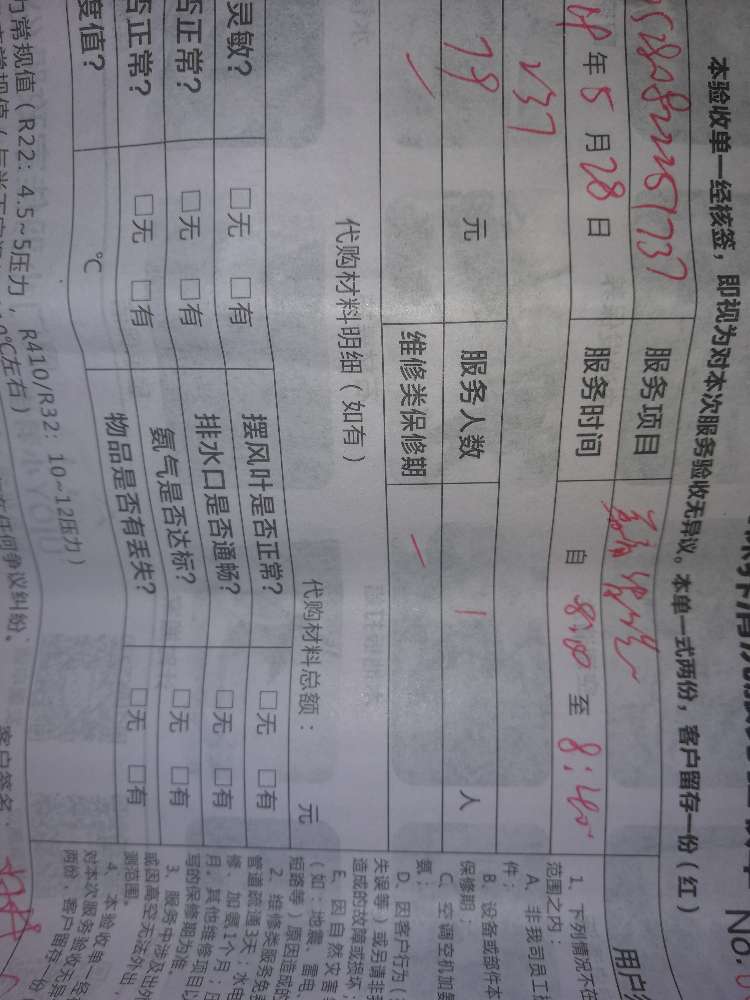 本验收单一经核签，即视为对本次服务验收无异议。本单一式两份，客户留存一份（红）
No.0
服务项目
用户
年5月28日
服务时间
自8:00至8:40
237
79元
服务人数
1人
维修类保修期
代购材料明细（如有）
代购材料总额：
元
灵敏？
□无 □有
摆风叶是否正常？
□无 □有
否正常？
□无 □有
排水口是否通畅？
□无 □有
否正常？
□无 □有
氨气是否达标？
□无 □有
度值？
℃
物品是否有丢失？
□无 □有
为常规值（R22：4.5~5压力，R410/R32：10~12压力）
℃左右）
任何争议纠纷。
客户签名：
1、下列情况不在
范围之内：
A、非我司员工
件；
B、设备或部件本
保修期；
C、空调空机加
氨；
D、因客户行为（
失误等）或另请非
造成的故障或损坏；
E、因自然灾害
（如：地震、雷电、
短路等）原因造成的
2、维修类服务免
管道疏通3天；水电
修、加氨1个月；
月，其他维修项目以
写的保修期为准
3、服务中涉及出外
或因高空无法外出，
测范围。
4、本验收单一经
对本次服务验收无异
两份，客户留存一份